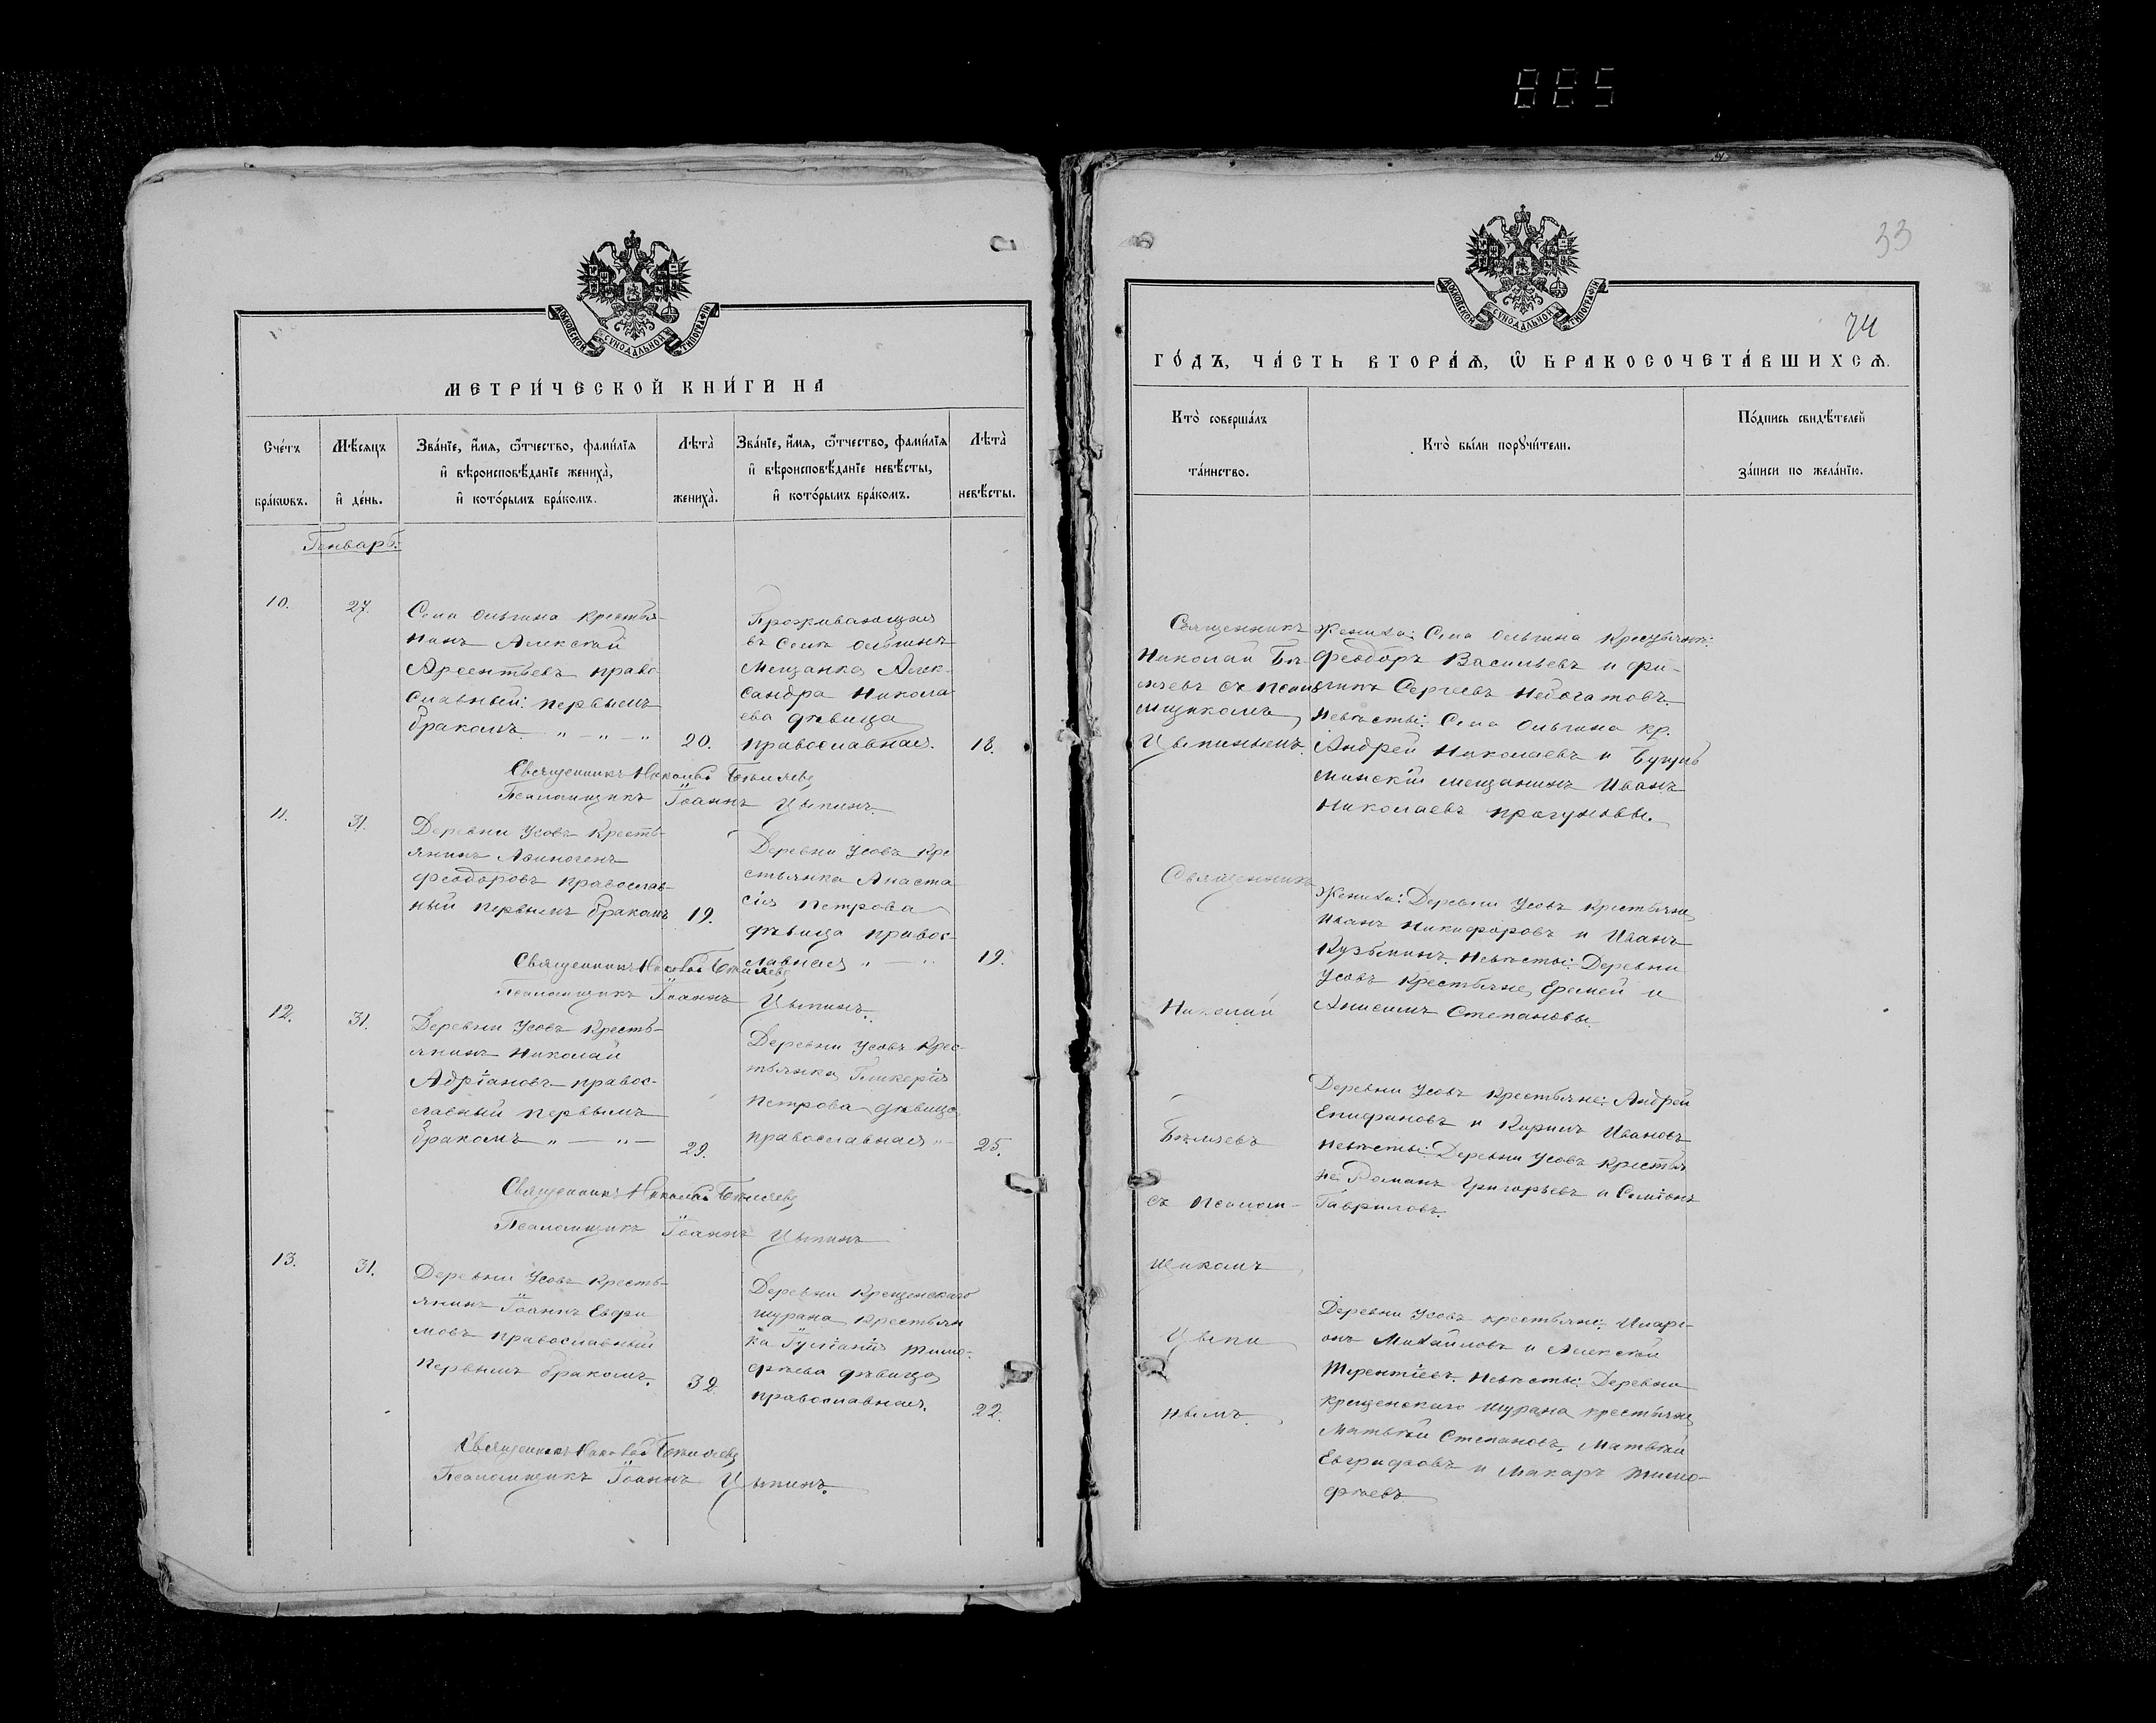 885
МОСКОВСКОЙ СѴНОДАЛЬНОЙ ТИПОГРАФІИ
МЕТРИ́ЧЕСКОЙ КНИ́ГИ НА
Сче́тъ бра́кωвъ.
Мѣ́сяцъ и҆ де́нь.
Зва́нїе, и҆́мѧ, ѻ҆́тчество, фами́лїѧ
и҆ вѣроисповѣ́данїе жениха̀,
и҆ кото́рымъ бра́комъ.
Лѣта̀ жениха̀.
Зва́нїе, и҆́мѧ, ѻ҆́тчество, фами́лїѧ
и҆ вѣроисповѣ́данїе невѣ́сты,
и҆ кото́рымъ бра́комъ.
Лѣта̀ невѣ́сты.
Генварь:
10.
27.
Села Ольгина крестья-
нинъ Алексѣй
Арсентьевъ право-
славный: первымъ
бракомъ " — " — "
20.
Проживающая
въ Селѣ Ольгинѣ
Мещанка Алек-
сандра Никола-
ева дѣвица
православная.
18.
Священникъ Николай Бѣляевъ
Псаломщикъ Іоаннъ Цыпинъ.
11.
31.
Деревни Усовъ Кресть-
янинъ Аѳиногенъ
Феодоровъ православ-
ный первымъ бракомъ
19.
Деревни Усовъ Кре
стьянка Анаста
сія Петрова
дѣвица правос-
лавная " — "
19.
Священникъ Николай Бѣляевъ
Псаломщикъ Іоаннъ Цыпинъ.
12.
31.
Деревни Усовъ Кресть-
янинъ Николай
Адріановъ правос-
лавный первымъ
бракомъ " — " —
29.
Деревни Усовъ Крес-
тьянка Гликерія
Петрова дѣвица
православная "
25.
Священникъ Николай Бѣляевъ
Псаломщикъ Іоаннъ Цыпинъ
13.
31.
Деревни Усовъ Кресть-
янинъ Іоаннъ Евфи
мовъ православный
первымъ бракомъ.
32.
Деревни Крещенскаго
шурана крестьян
ка Іуліанія Тимо-
фѣева дѣвица
православная.
22.
Священникъ Николай Бѣляевъ
Псаломщикъ Іоаннъ Цыпинъ.
33
74
МОСКОВСКОЙ СѴНОДАЛЬНОЙ ТИПОГРАФІИ
ГО́ДЪ, ЧА́СТЬ ВТОРА́Ѧ, Ѽ БРАКОСОЧЕТА́ВШИХСѦ.
Кто̀ соверша́лъ
та́инство.
Кто̀ бы́ли порꙋчи́тели.
По́дпись свидѣ́телей
за́писи по жела́нїю.
Священникъ
Николай Бѣ-
ляевъ съ псало
мщикомъ
Цыпинымъ.
Жениха: Села Ольгина Крестьяне:
Феодоръ Васильевъ и Фи-
липпъ Сергѣевъ Небогатовъ.
Невѣсты: Села Ольгина кр.
Андрей Николаевъ и Бугуль
минскій мещанинъ Иванъ
Николаевъ
Священникъ
Николай
Бѣляевъ
съ псалом-
щикомъ
Цыпи
нымъ.
Жениха: Деревни Усовъ Крестьяне
Иванъ Никифоровъ и Иванъ
Кузьминъ. Невѣсты: Деревни
Усовъ Крестьяне, Еремей и
Анисимъ Степановы.
Деревни Усовъ Крестьяне: Андрей
Епифановъ и Кирилъ Ивановъ
Невѣсты: Деревни Усовъ крестья
не: Романъ Григорьевъ и Семіонъ
Гавриловъ.
Деревни Усовъ крестьяне: Иларі-
онъ Михайловъ и Алексѣй
Терентіевъ. Невѣсты: Деревни
Крещенскаго шурана крестьяне
Матвѣй Степановъ, Матвѣй
Евграфовъ и Макаръ Тимо-
фѣевъ